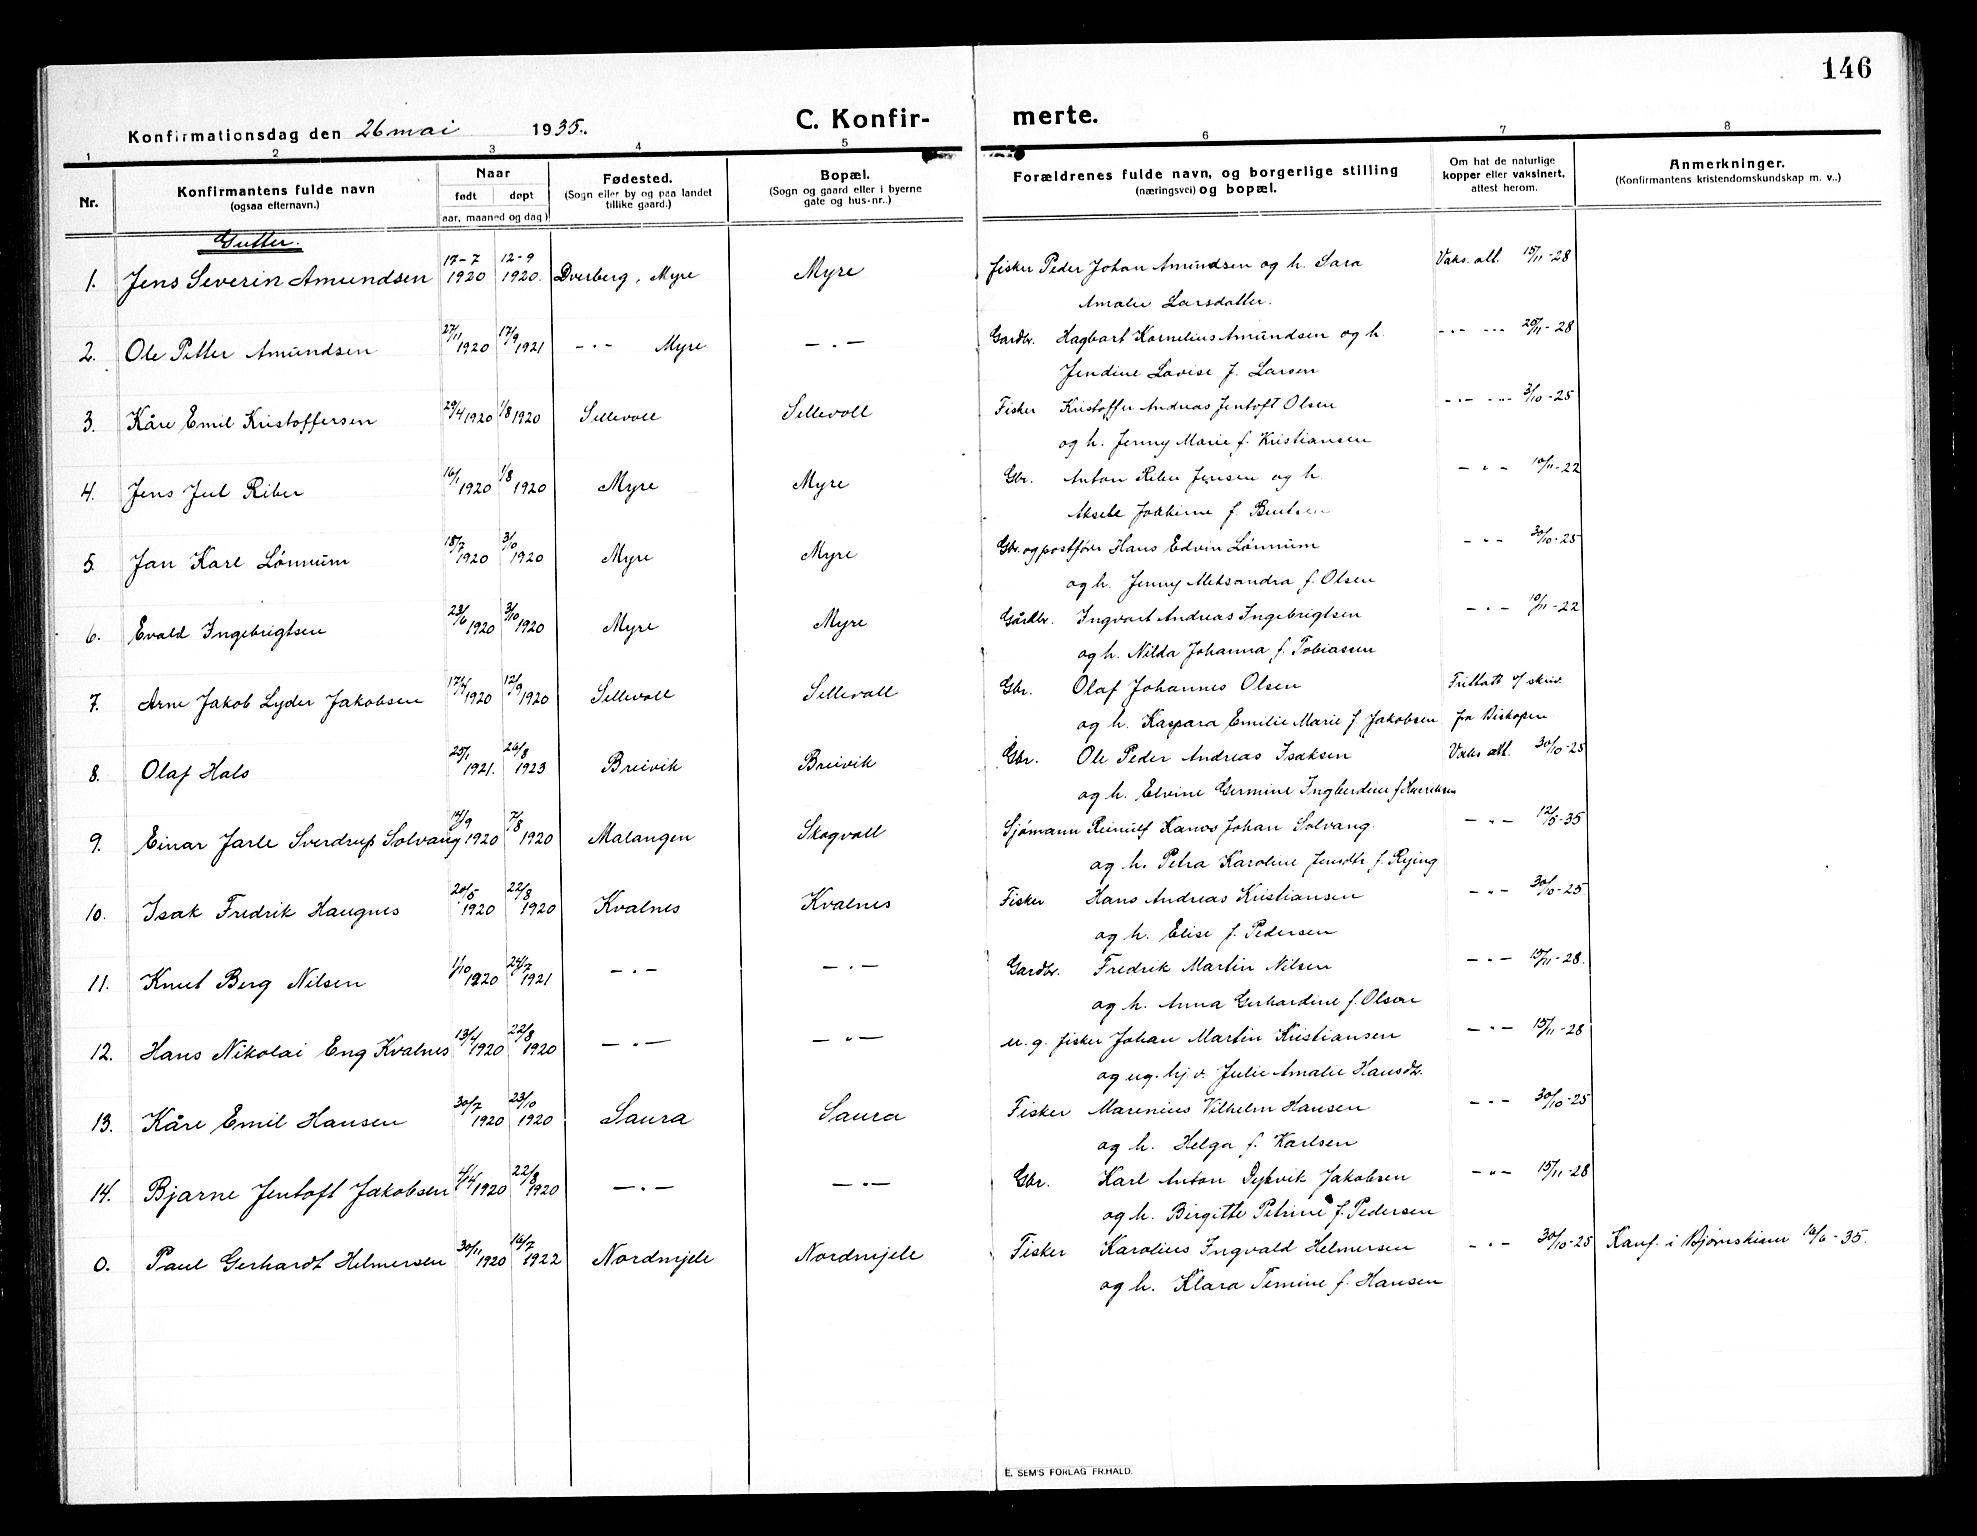 146
C. Konfir- merte.
Konfirmationsdag den 26 mai 1935.
1 2 3 4 5 6 7 8
Nr. Konfirmantens fulde navn (ogsaa efternavn.) Naar født døpt aar, maaned og dag) Fødested. (Sogn eller by og paa landet tillike gaard.) Bopæl. (Sogn og gaard eller i byerne gate og hus-nr.) Forældrenes fulde navn, og borgerlige stilling (næringsvei) og bopæl. Om hat de naturlige kopper eller vaksinert, attest herom. Anmerkninger. (Konfirmantens kristendomskundskap m. v..)
Gutter.
1. Jens Severin Amundsen 17-7 1920 12-9 1920. Dverberg, Myre Myre fisker Peder Johan Amundsen og h. Sara Vaks. att. 15/11-28
Amalie Larsdatter.
2. Ole Petter Amundsen 27/11 1920 17/9 1921 -"- Myre -"- Gardbr. Hagbart Kornelius Amundsen og h. -"- -"- 25/11-28
Jendine Lovise f. Larsen
3. Kåre Emil Kristoffersen 29/4 1920 1/8 1920 Sellevoll Sellevoll Fisker Kristoffer Andreas Jentoft Olsen -"- -"- 3/10-25
og h. Jenny Marie f. Kristiansen
4. Jens Jul Riber 16/1 1920 1/8 1920 Myre Myre Gbr. Anton Riber Jensen og h. -"- 10/11-22
Aksele Joakime f. Bentsen
5. Jan Karl Lønnum 18/7 1920 3/10 1920 Myre Myre Gbr. og postfører Hans Edvin Lønnum -"- 30/10-25
og h. Jenny Aleksandra f. Olsen
6. Evald Ingebrigtsen 23/6 1920 3/10 1920 Myre Myre Gårdbr. Ingvart Andreas Ingebrigtsen -"- 10/11-22
og h. Nilda Johanna f. Tobiassen
7. Arne Jakob Lyder Jakobsen 17/4 1920 12/9 1920 Sellevoll Sellevoll Gbr. Olaf Johannes Olsen Frittatt v/ skriv.
og h. Kaspara Emilie Marie f Jakobsen fra Biskopen
8. Olaf Hals 25/1 1921. 26/8 1923 Breivik Breivik Gbr. Ole Peder Andreas Isaksen Vaks att. 30/10-25
og h. Elvine Germine Ingberdine f Henriksen
9. Einar Jarle Sverdrup Solvang 14/9 1920 7/8 1920 Malangen Skogvoll Sjømann Reinulf Kanos Johan Solvang. -"- 12/5-35
og h. Petra Karoline Jensdtr f. Rying
10. Isak Fredrik Haugnes 20/5 1920 22/8 1920 Kvalnes Kvalnes Fisker Hans Andreas Kristiansen -"- 30/10-25
og h. Elise f. Pedersen
11. Knut Berg Nilsen 1/10 1920 24/7 1921 -"- -"- Gardbr. Fredrik Martin Nilsen -"- 15/11-28.
og h. Anna Gerhardine f. Olsen
12. Hans Nikolai Eng Kvalnes 13/4 1920 22/8 1920 -"- -"- u. g. fisker Johan Martin Kristiansen -"- 15/11-28
og ug. hj. v. Julie Amalie Hansdtr.
13. Kåre Emil Hansen 30/7 1920 23/10 1920 Saura Saura Fisker Marenius Vilhelm Hansen -"- 30/10-25
og h. Helga f. Karlsen
14. Bjarne Jentoft Jakobsen 4/4 1920 22/8 1920 -"- -"- Gbr. Karl Anton Dykvik Jakobsen -"- 15/11-28
og h. Birgitte Petrine f. Pedersen
0. Paul Gerhardt Helmersen 30/11 1920 16/7 1922 Nordmjele Nordmjele Fisker Karolius Ingvald Helmersen -"- 30/10-25 Konf. i Bjørnskinn 16/6-35.
og h. Klara Temine f. Hansen
E. SEM'S FORLAG FR.HALD.